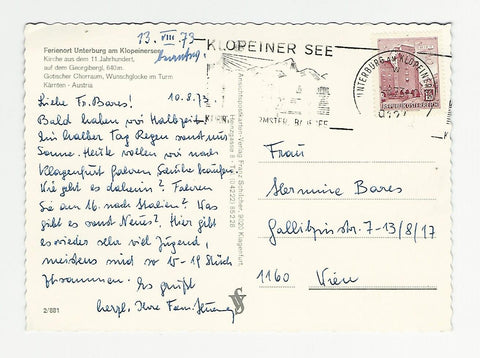 13. VIII. 73
Ferienort Unterburg am Klopeinersee
Kirche aus dem 11. Jahrhundert,
auf dem Georgibergl, 640m.
Gotischer Chorraum, Wunschglocke im Turm
Kärnten - Austria
10.8.73
Liebe Fr. Bares!
Bald haben wir Halbzeit.
Ein halber Tag Regen sonst nur
Sonne. Heute wollen wir nach
Klagenfurt fahren Schuhe kaufen.
Wie geht es daheim? Fahren
Sie am 16. nach Italien? Was
gibt es sonst Neues? Hier gibt
es wieder sehr viel Jugend,
meistens sind so 15-19 Stück
zusammen. Es grüßt
herzl. Ihre Fam.
2/881
KLOPEINER SEE
UNTERBURG AM KLOPEINERSEE
9127
REPUBLIK ÖSTERREICH
Frau
Hermine Bares
Gallitzinstr. 7-13/8/17
1160 Wien